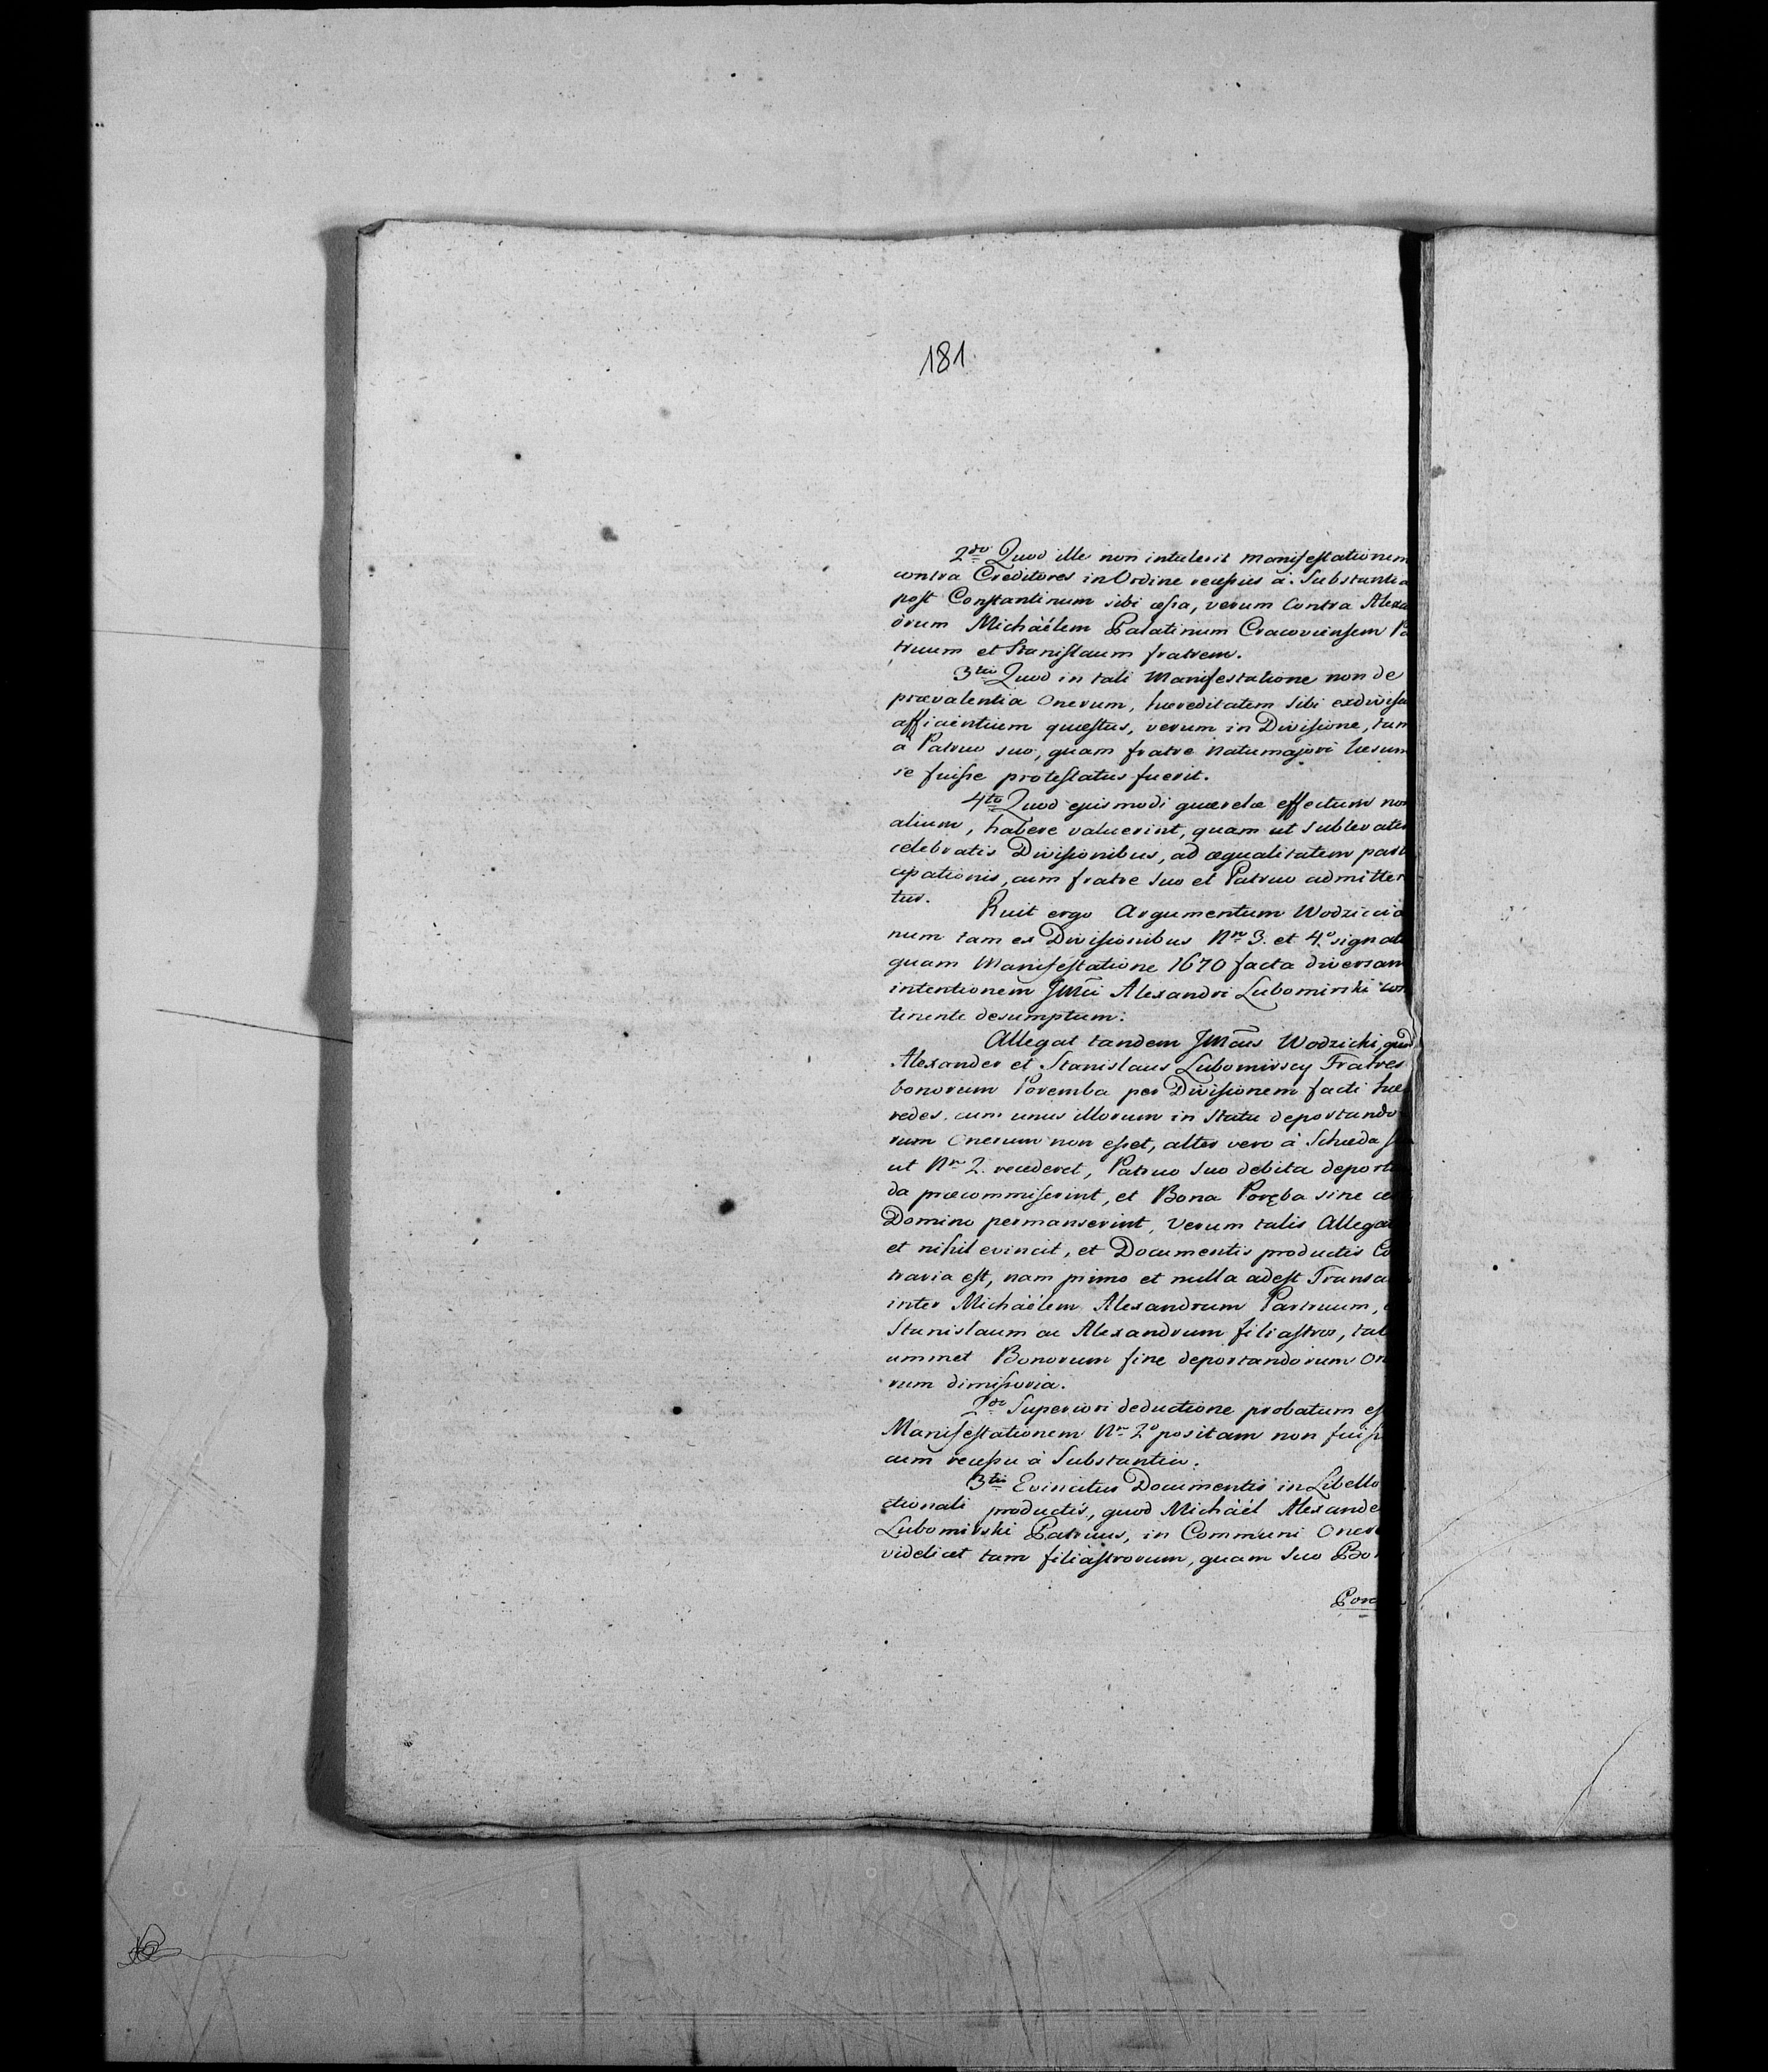 181
2do Quod ille non intulerit Manifestationem
contra Creditores in Ordine recessus à Substantia
post Constantinum sibi cessa, verum Contra Alexa
drum Michaëlem Palatinum Cracoviensem Pa
truum et Stanislaum fratrem.
3tio Quod in tali Manifestatione non de
prævalentia Onerum, hæreditatem sibi exdivisa
afficientium quæstus, verum in Divisione, tam
à Patruo suo, quam fratre natumajori læsum
se fuisse protestatus fuerit.
4to Quod ejusmodi quærelæ effectum non
alium, habere valuerint, quam ut sublevatis
celebratis Divisionibus, ad æqualitatem parti
cipationis, cum fratre suo et Patruo admitter
tur.
Ruit ergo Argumentum Wodziccia
num tam ex Divisionibus Nr 3. et 4o signat
quam Manifestatione 1670 facta diversam
intentionem Alexandri Lubomirski con
tinente desumptum.
Allegat tandem Wodzicki, quod
Alexander et Stanislaus Lubomirscy Fratres
bonorum Poremba per Divisionem facti hæ
redes, cum unus illorum in Statu deportando
rum Onerum non esset, alter vero à Scheda
ut Nr 2. recederet, Patruo suo debita deport
da præcommiserint, et Bona Poręba sine
Domino permanserint, Verum talis Allega
et nihil evincit, et Documentis productis Co
traria est, nam primo et nulla adest Transa
inter Michaëlem Alexandrum Partruum,
Stanislaum ac Alexandrum filiastros, tal
ummet Bonorum fine deportandorum On
rum dimissoria.
2do Superiori deductione probatum es
Manifestationem Nr 2o positam non fuiss
cum recessu à Substantia.
3tio Evincitur Documentis in Libello
ctionali productis, quod Michaël Alexande
Lubomirski Patruus, in Communi Oner
videlicet tam filiastrorum, quam suo Bo
Pore